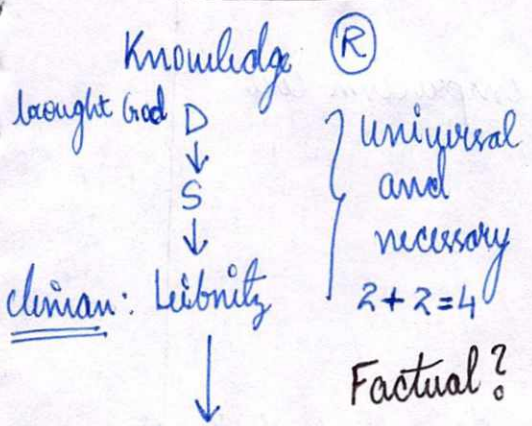 Knowledge Ⓡ
brought God D
↓
S
↓
climax: Leibnitz
↓
} universal
and
necessary
2+2=4
Factual?